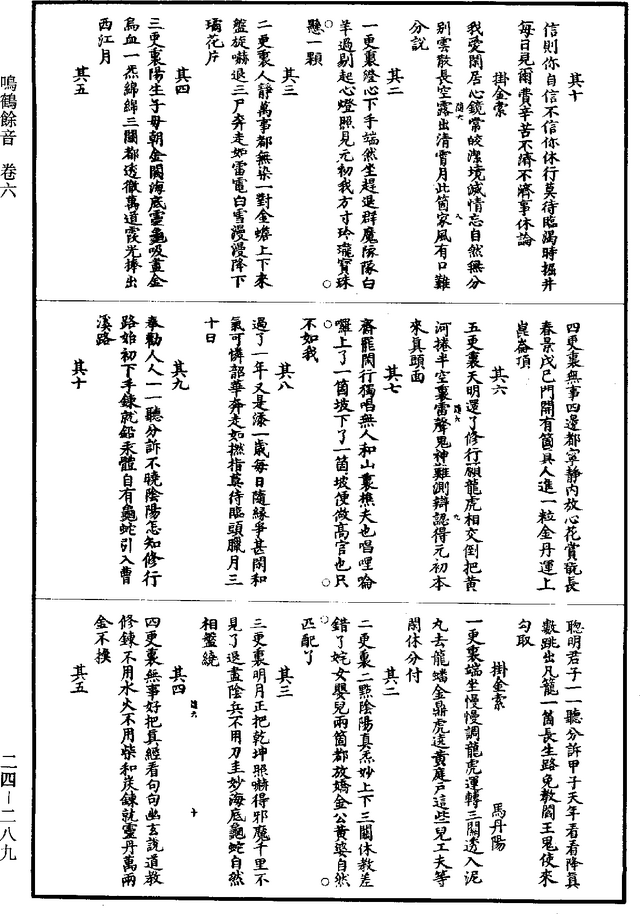 鳴鶴餘音　卷六
二四－二八九
其十
信則你自信不信你休行莫待臨渴時掘井
每日見爾費辛苦不濟不濟事休論
掛金索
我愛閑居心鏡常皎潔境滅情忘自然無分
別雲散長空露出清霄月此箇家風有口難
分說
其二
一更裏澄心下手端然坐趕退群魔隊隊白
羊過剔起心燈照見元初我方寸玲瓏寶珠
懸一顆
其三
二更裏人靜萬事都無染一對金蟾上下來
盤旋嚇退三尸奔走如雷電白雪漫漫降下
瓊花片
其四
三更裏陽生子母朝金闕海底靈龜吸盡金
烏血一炁綿綿三關都透徹萬道霞光捧出
西江月
其五
四更裏無事四邊都寧靜內放心花賞翫長
春景戊己門開有箇真人進一粒金丹運上
崑崙頂
其六
五更裏天明還了修行願龍虎相交倒把黃
河捲半空裏雷聲鬼神難測辯認得元初本
來真頭面
其七
齋罷閑行獨唱無人和山裏樵夫也唱哩㖮
囉上了一箇坡下了一箇坡便做高官也只
不如我
其八
過了一年又是添一歲每日隨緣爭甚閑和
氣可憐韶華奔走如撚指莫待臨頭臘月三
十日
其九
奉勸人人一一聽分訴不曉陰陽怎知修行
路始初下手鍊就鉛汞體自有龜蛇引入曹
溪路
其十
聰明君子一一聽分訴甲子天年看看降真
數跳出凡籠一箇長生路免教閻王鬼使來
勾取
掛金索　馬丹陽
一更裏端坐慢慢調龍虎運轉三關透入泥
丸去龍蟠金鼎虎遶黃庭戶這些兒工夫等
閑休分付
其二
二更裏二點陰陽真炁妙上下三關休教差
錯了姹女嬰兒兩箇都放嬌金公黃婆自然
匹配了
其三
三更裏明月正把乾坤照嚇得邪魔千里不
見了退盡陰兵不用刀圭妙海底龜蛇自然
相盤繞
其四
四更裏無事好把真經看句句幽玄說道教
修鍊不用水火不用柴和炭鍊就靈丹萬兩
金不換
其五